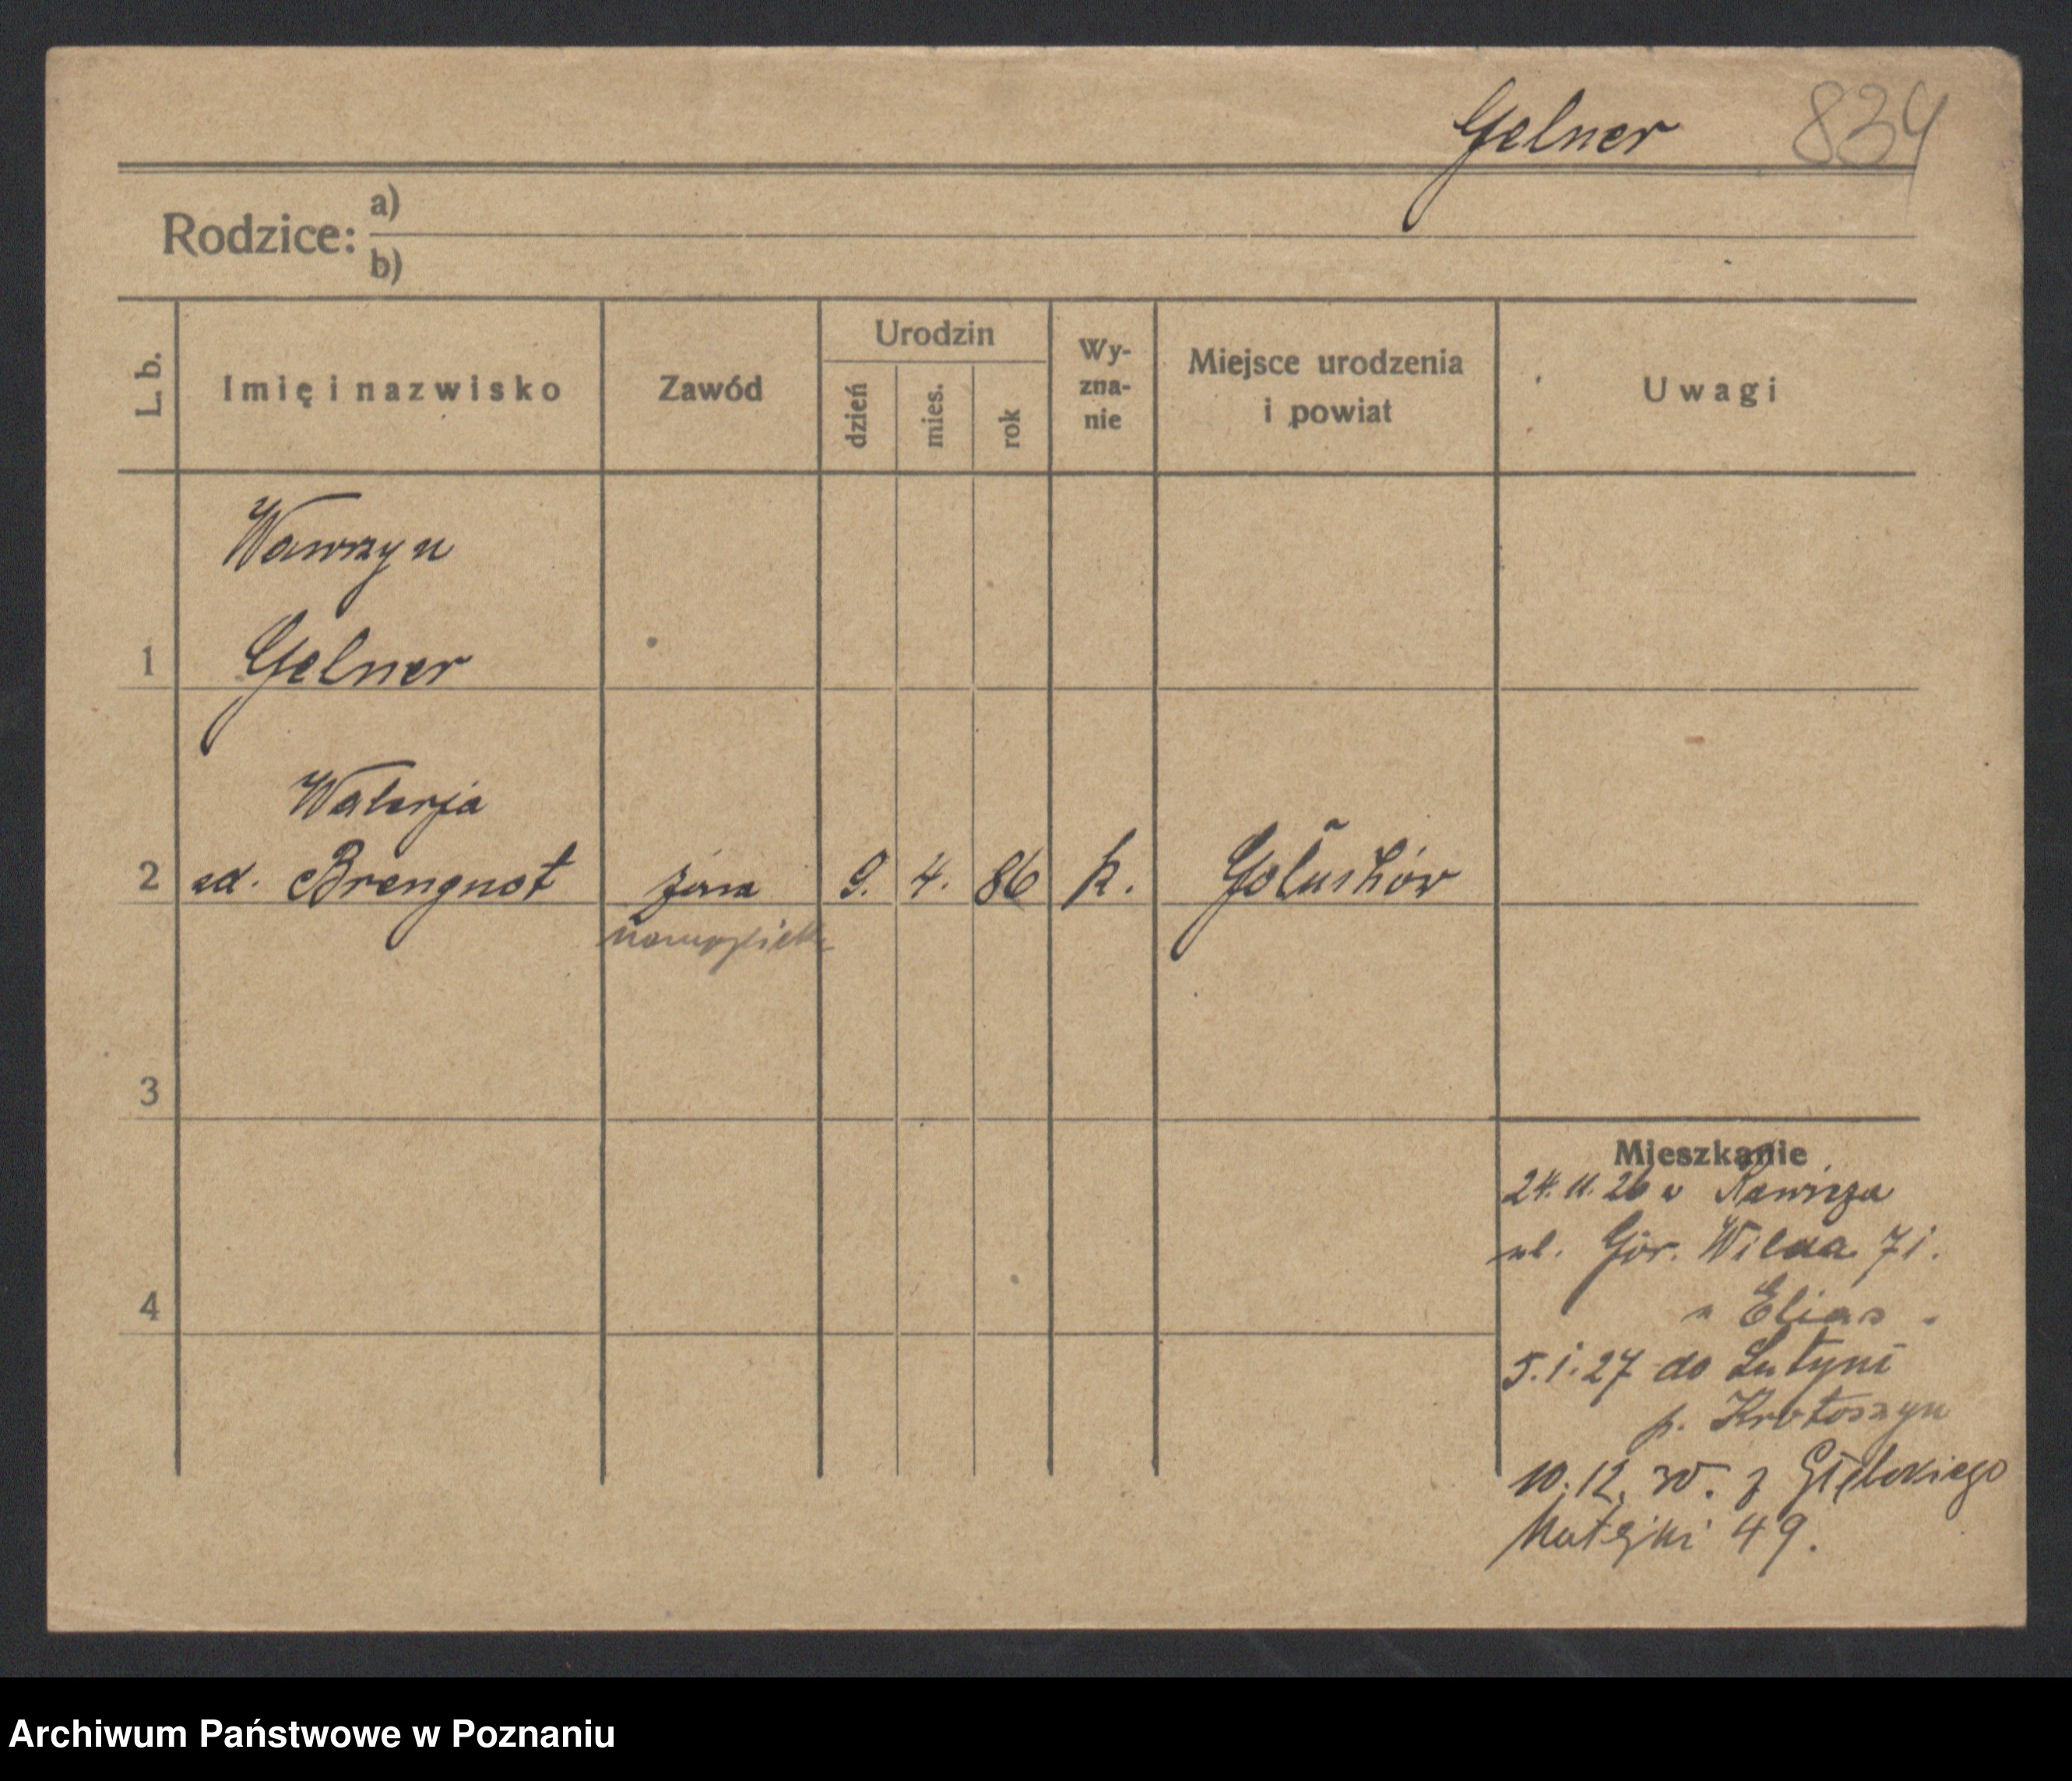 Gelner 834
Rodzice: a)
b)
L. b. Imię i nazwisko Zawód Urodzin dzień mies. rok Wy-zna-nie Miejsce urodzenia i powiat Uwagi
Wawrzyn
1 Gelner
Walerja
2 zd. Brengnot żona 9. 4. 86 k. Gołuchów
3
Mieszkanie
24. 11. 26 Rawicza
ul. Gór. Wilda 71.
4
u Elias.
5.1.27 do Lutyni
p. Krotoszyn
10.12.30. z Głębokiego
Matejki 49.
Archiwum Państwowe w Poznaniu